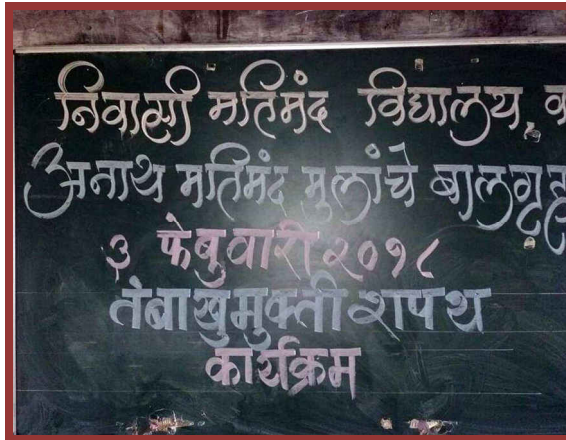 निवासी मतिमंद विद्यालय, व
अनाथ मतिमंद मुलांचे बालगृह
३ फेब्रुवारी २०१८
तंबाखुमुक्ती शपथ
कार्यक्रम